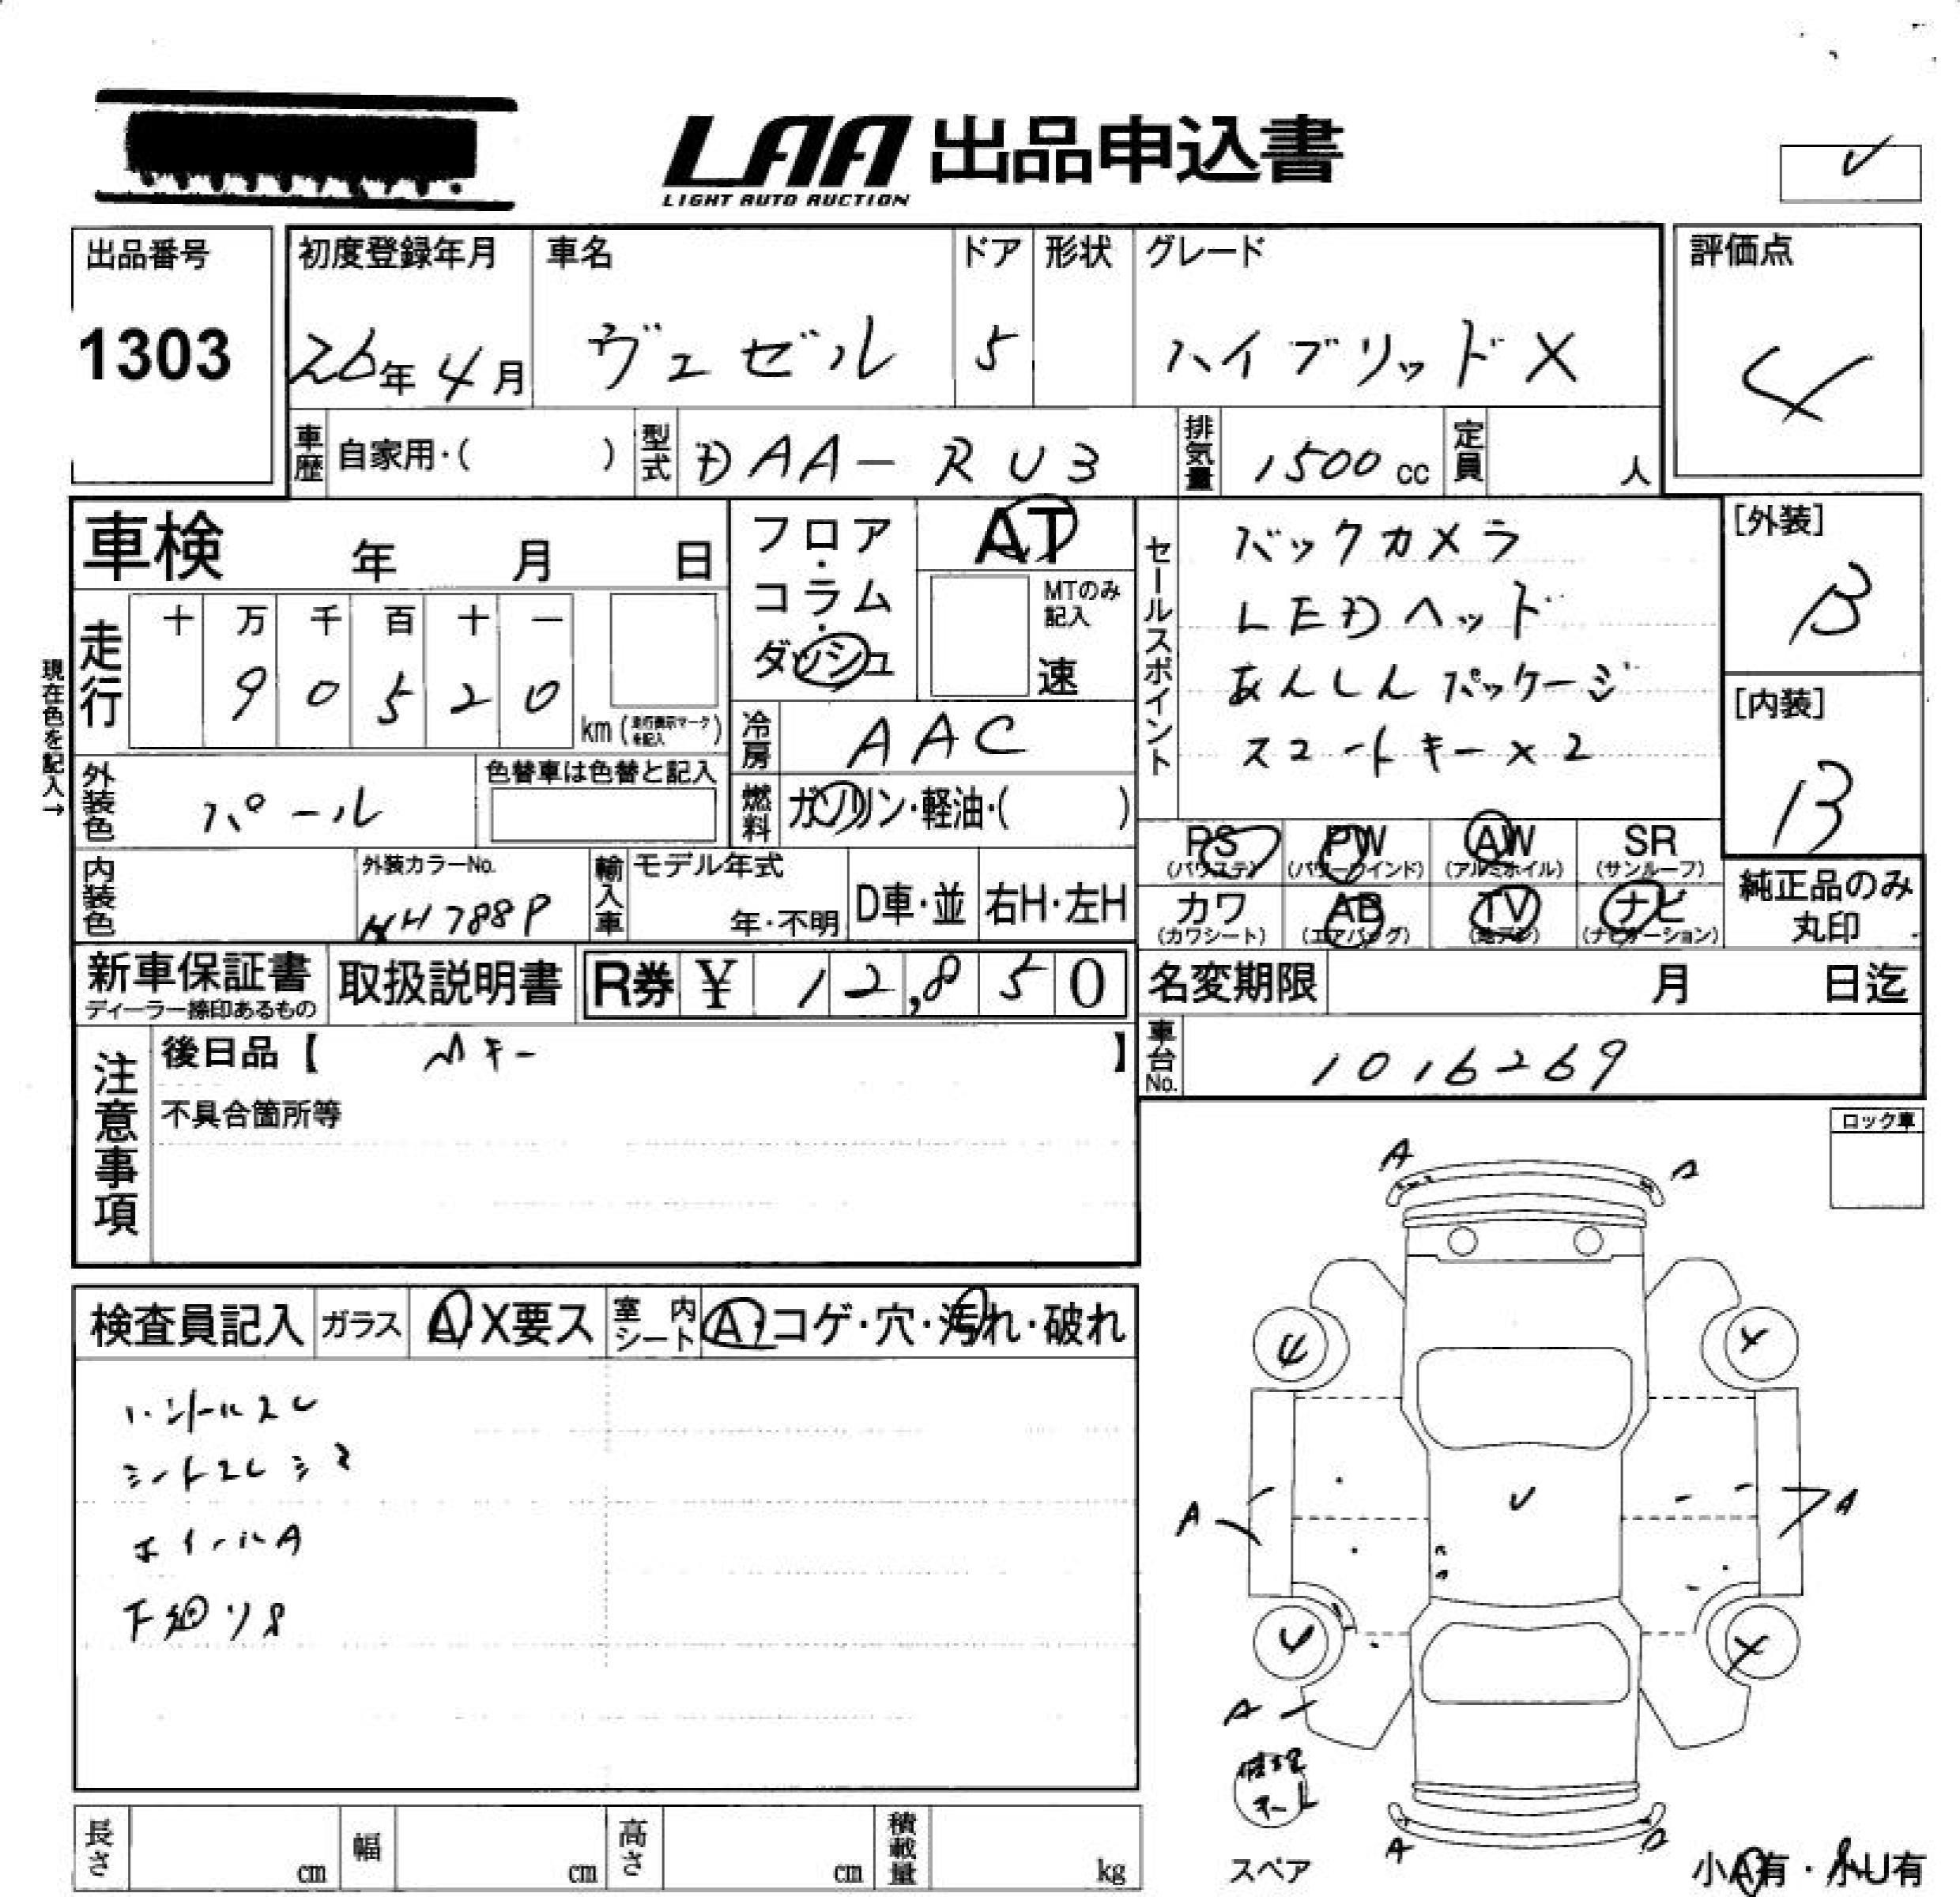 LAA 出品申込書
LIGHT AUTO AUCTION
出品番号
1303
初度登録年月
26年 4月
車名
ヴェゼル
ドア
5
形状
グレード
ハイブリッドX
評価点
4
車歴 自家用・( )
型式 DAA-RU3
排気量 1500 cc
定員 人
車検 年 月 日
フロア・コラム・ダッシュ
AT
MTのみ記入
速
セールスポイント
バックカメラ
LEDヘッド
あんしんパッケージ
スマートキー×2
[外装]
B
[内装]
B
現在色を記入→
走行
十 万 千 百 十 一
9 0 5 2 0
km (走行表示マークを記入)
冷房 AAC
外装色 パール
色替車は色替と記入
燃料 ガソリン・軽油・( )
PS (パワステ)
PW (パワーウインド)
AW (アルミホイル)
SR (サンルーフ)
カワ (カワシート)
AB (エアバッグ)
TV (地デジ)
ナビ (ナビゲーション)
純正品のみ丸印
内装色
外装カラーNo.
NH788P
輸入車
モデル年式
年・不明
D車・並
右H・左H
新車保証書
ディーラー捺印あるもの
取扱説明書
R券 ¥ 12,850
名変期限 月 日迄
注意事項
後日品【 キー 】
不具合箇所等
車台No. 1016269
ロック車
検査員記入
ガラス A X要ス
室内シート A・コゲ・穴・汚れ・破れ
ハンドルスレ
シートスレシミ
ホイールA
下廻りS
A
A
4
4
A
A
4
4
A
A
A
スペア
小A有・小U有
長さ cm
幅 cm
高さ cm
積載量 kg